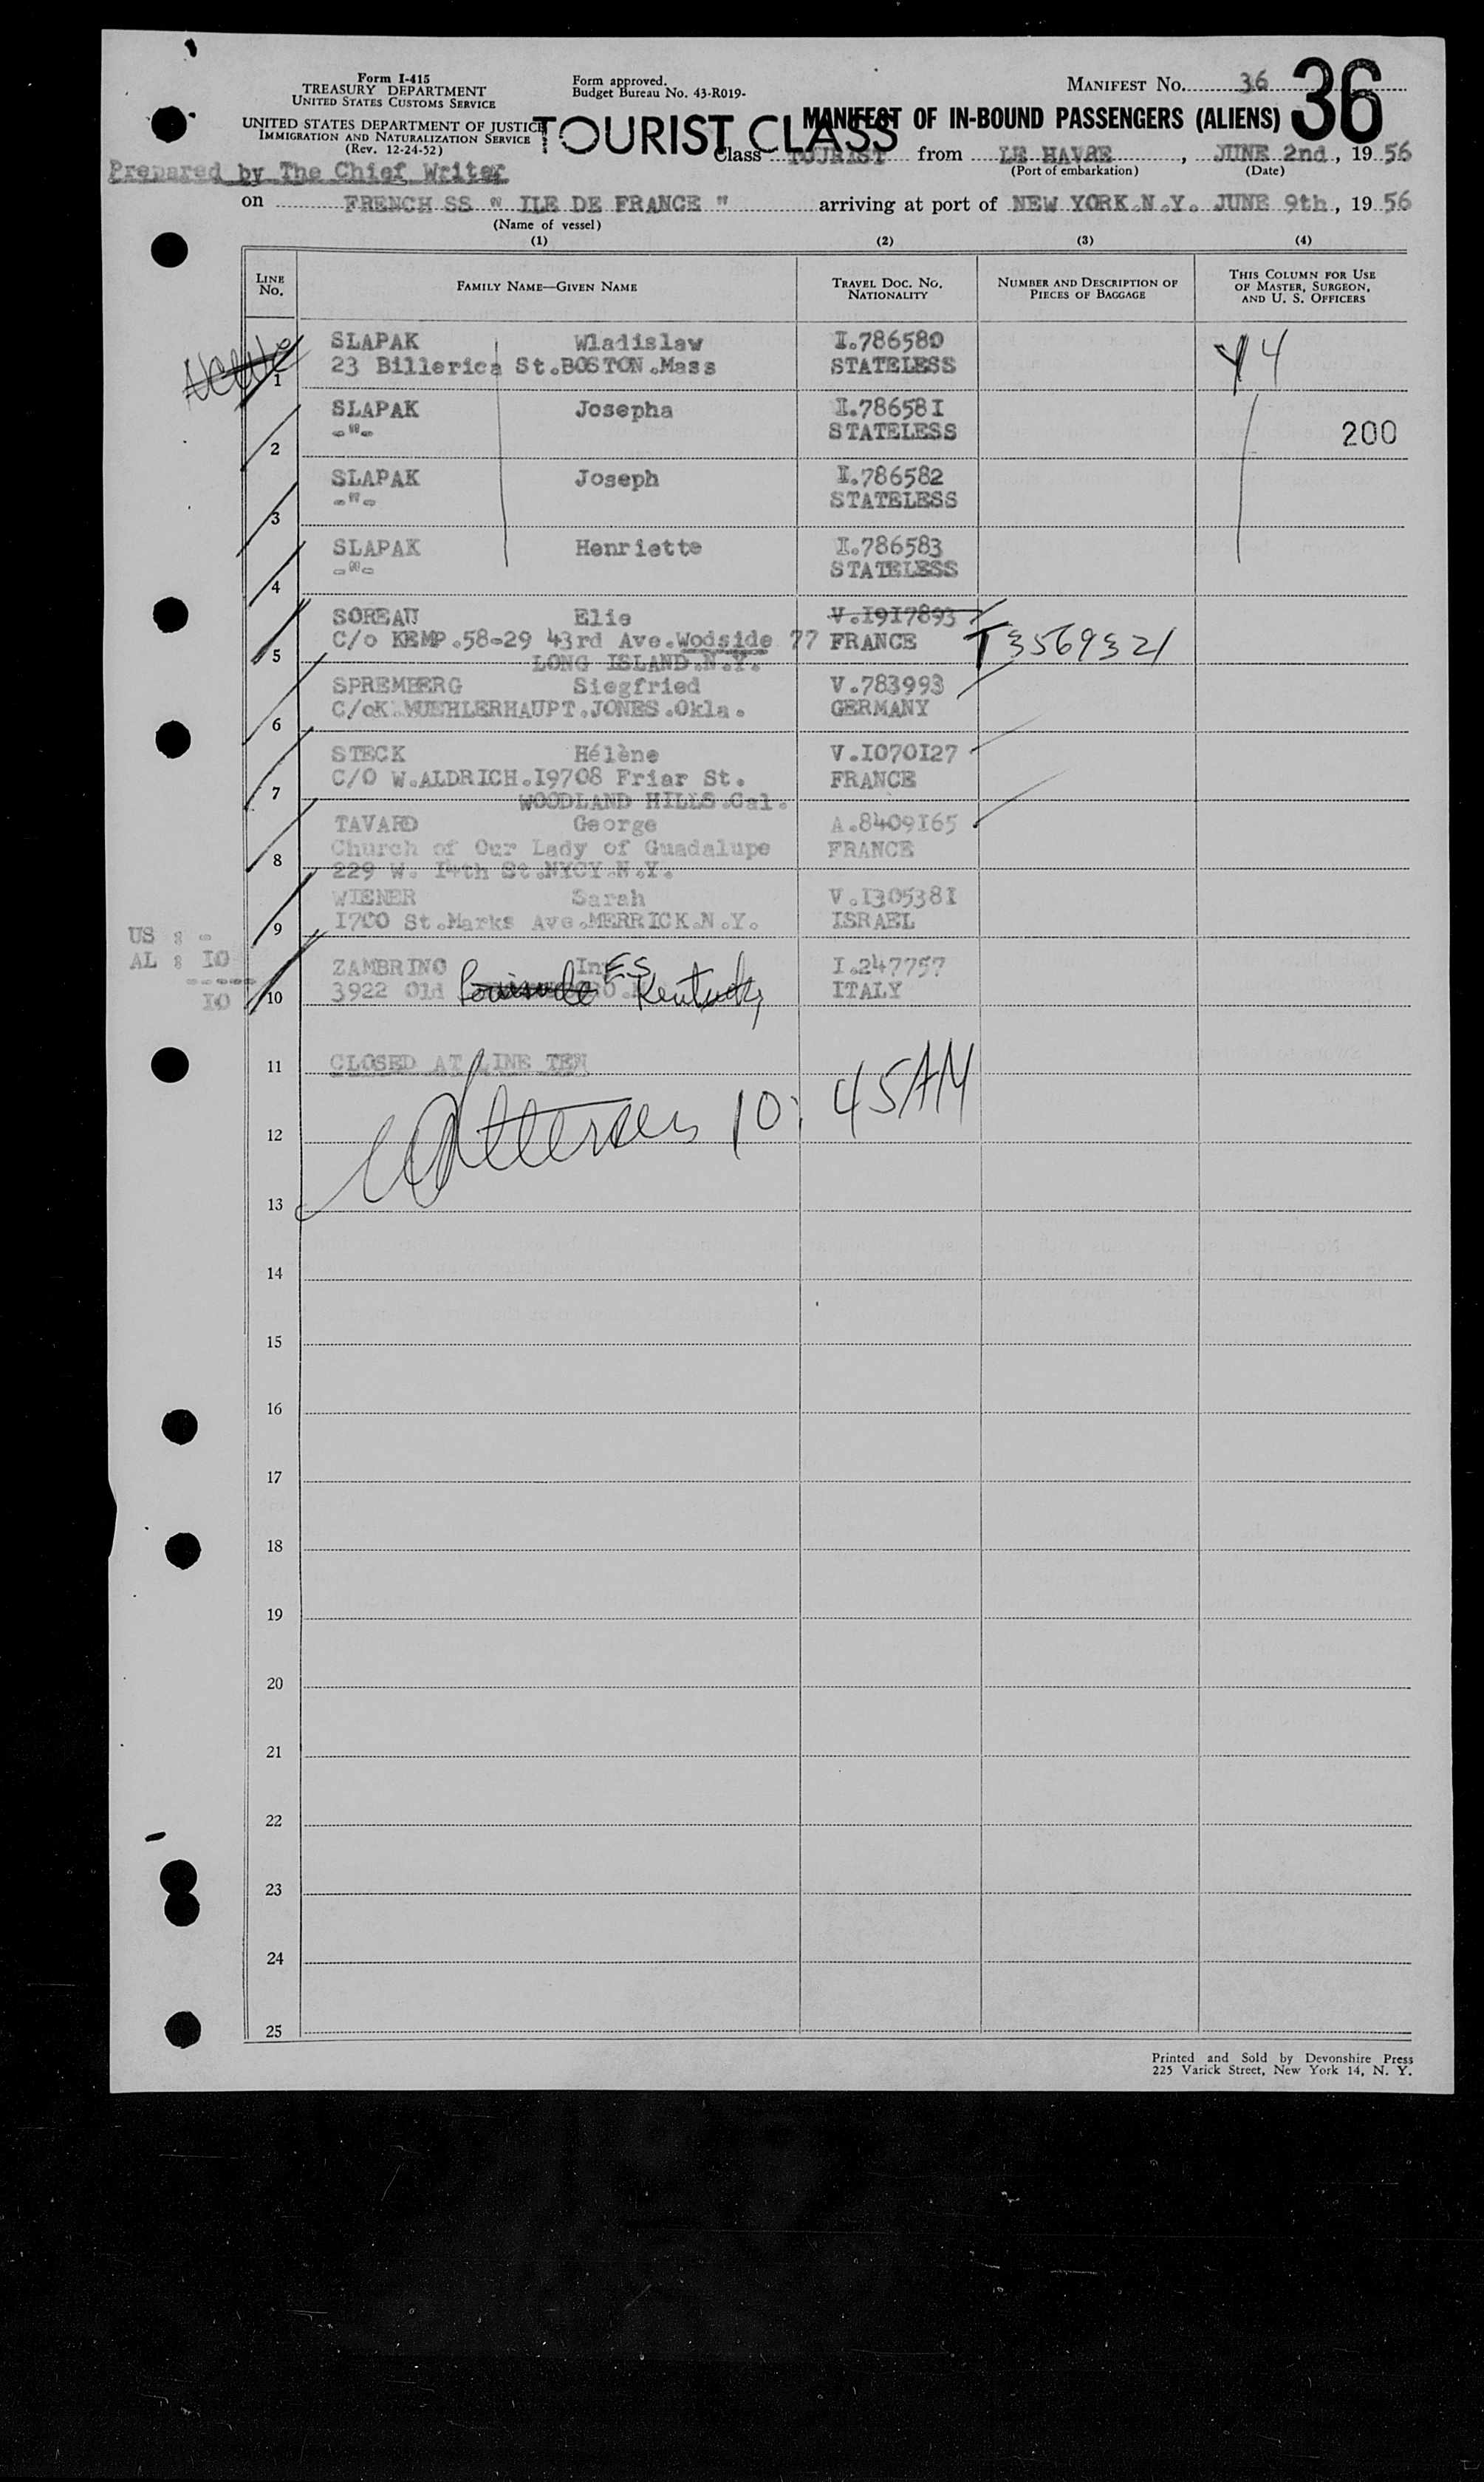 Form I-415
TREASURY DEPARTMENT
UNITED STATES CUSTOMS SERVICE
UNITED STATES DEPARTMENT OF JUSTICE
IMMIGRATION AND NATURALIZATION SERVICE
(Rev. 12-24-52)
Form approved.
Budget Bureau No. 43-R019-
MANIFEST No. 36
36
TOURIST CLASS
MANIFEST OF IN-BOUND PASSENGERS (ALIENS)
Class TOURIST from LE HAVRE, JUNE 2nd, 1956
(Port of embarkation) (Date)
Prepared by The Chief Writer
on FRENCH SS " ILE DE FRANCE " arriving at port of NEW YORK.N.Y. JUNE 9th, 1956
(Name of vessel)
(1) (2) (3) (4)
LINE No. FAMILY NAME—GIVEN NAME TRAVEL DOC. NO. NATIONALITY NUMBER AND DESCRIPTION OF PIECES OF BAGGAGE THIS COLUMN FOR USE OF MASTER, SURGEON, AND U. S. OFFICERS
SLAPAK Wladislaw I.786580
1 23 Billerica St.BOSTON.Mass STATELESS 4
SLAPAK Josepha I.78658I
2 -"- STATELESS 200
SLAPAK Joseph I.786582
3 -"- STATELESS
SLAPAK Henriette I.786583
4 -"- STATELESS
SOREAU Elie V.I9I7893
5 C/o KEMP.58-29 43rd Ave.Wodside 77 FRANCE T3569321
LONG ISLAND.N.Y.
SPREMBERG Siegfried V.783993
6 C/oK.MUEHLERHAUPT.JONES.Okla. GERMANY
STECK Hélène V.I070I27
7 C/O W.ALDRICH.I9708 Friar St. FRANCE
WOODLAND HILLS.Cal.
TAVARD George A.8409I65
8 Church of Our Lady of Guadalupe FRANCE
229 W. I4th St.NYCY.N.Y.
WIENER Sarah V.I30538I
9 I700 St.Marks Ave.MERRICK.N.Y. ISRAEL
US : -
AL : I0
-----
I0
ZAMBRINO I.247757
10 3922 Old Kentucky ITALY
11 CLOSED AT LINE TEN
12 10:45AM
13
14
15
16
17
18
19
20
21
22
23
24
25
Printed and Sold by Devonshire Press
225 Varick Street, New York 14, N. Y.